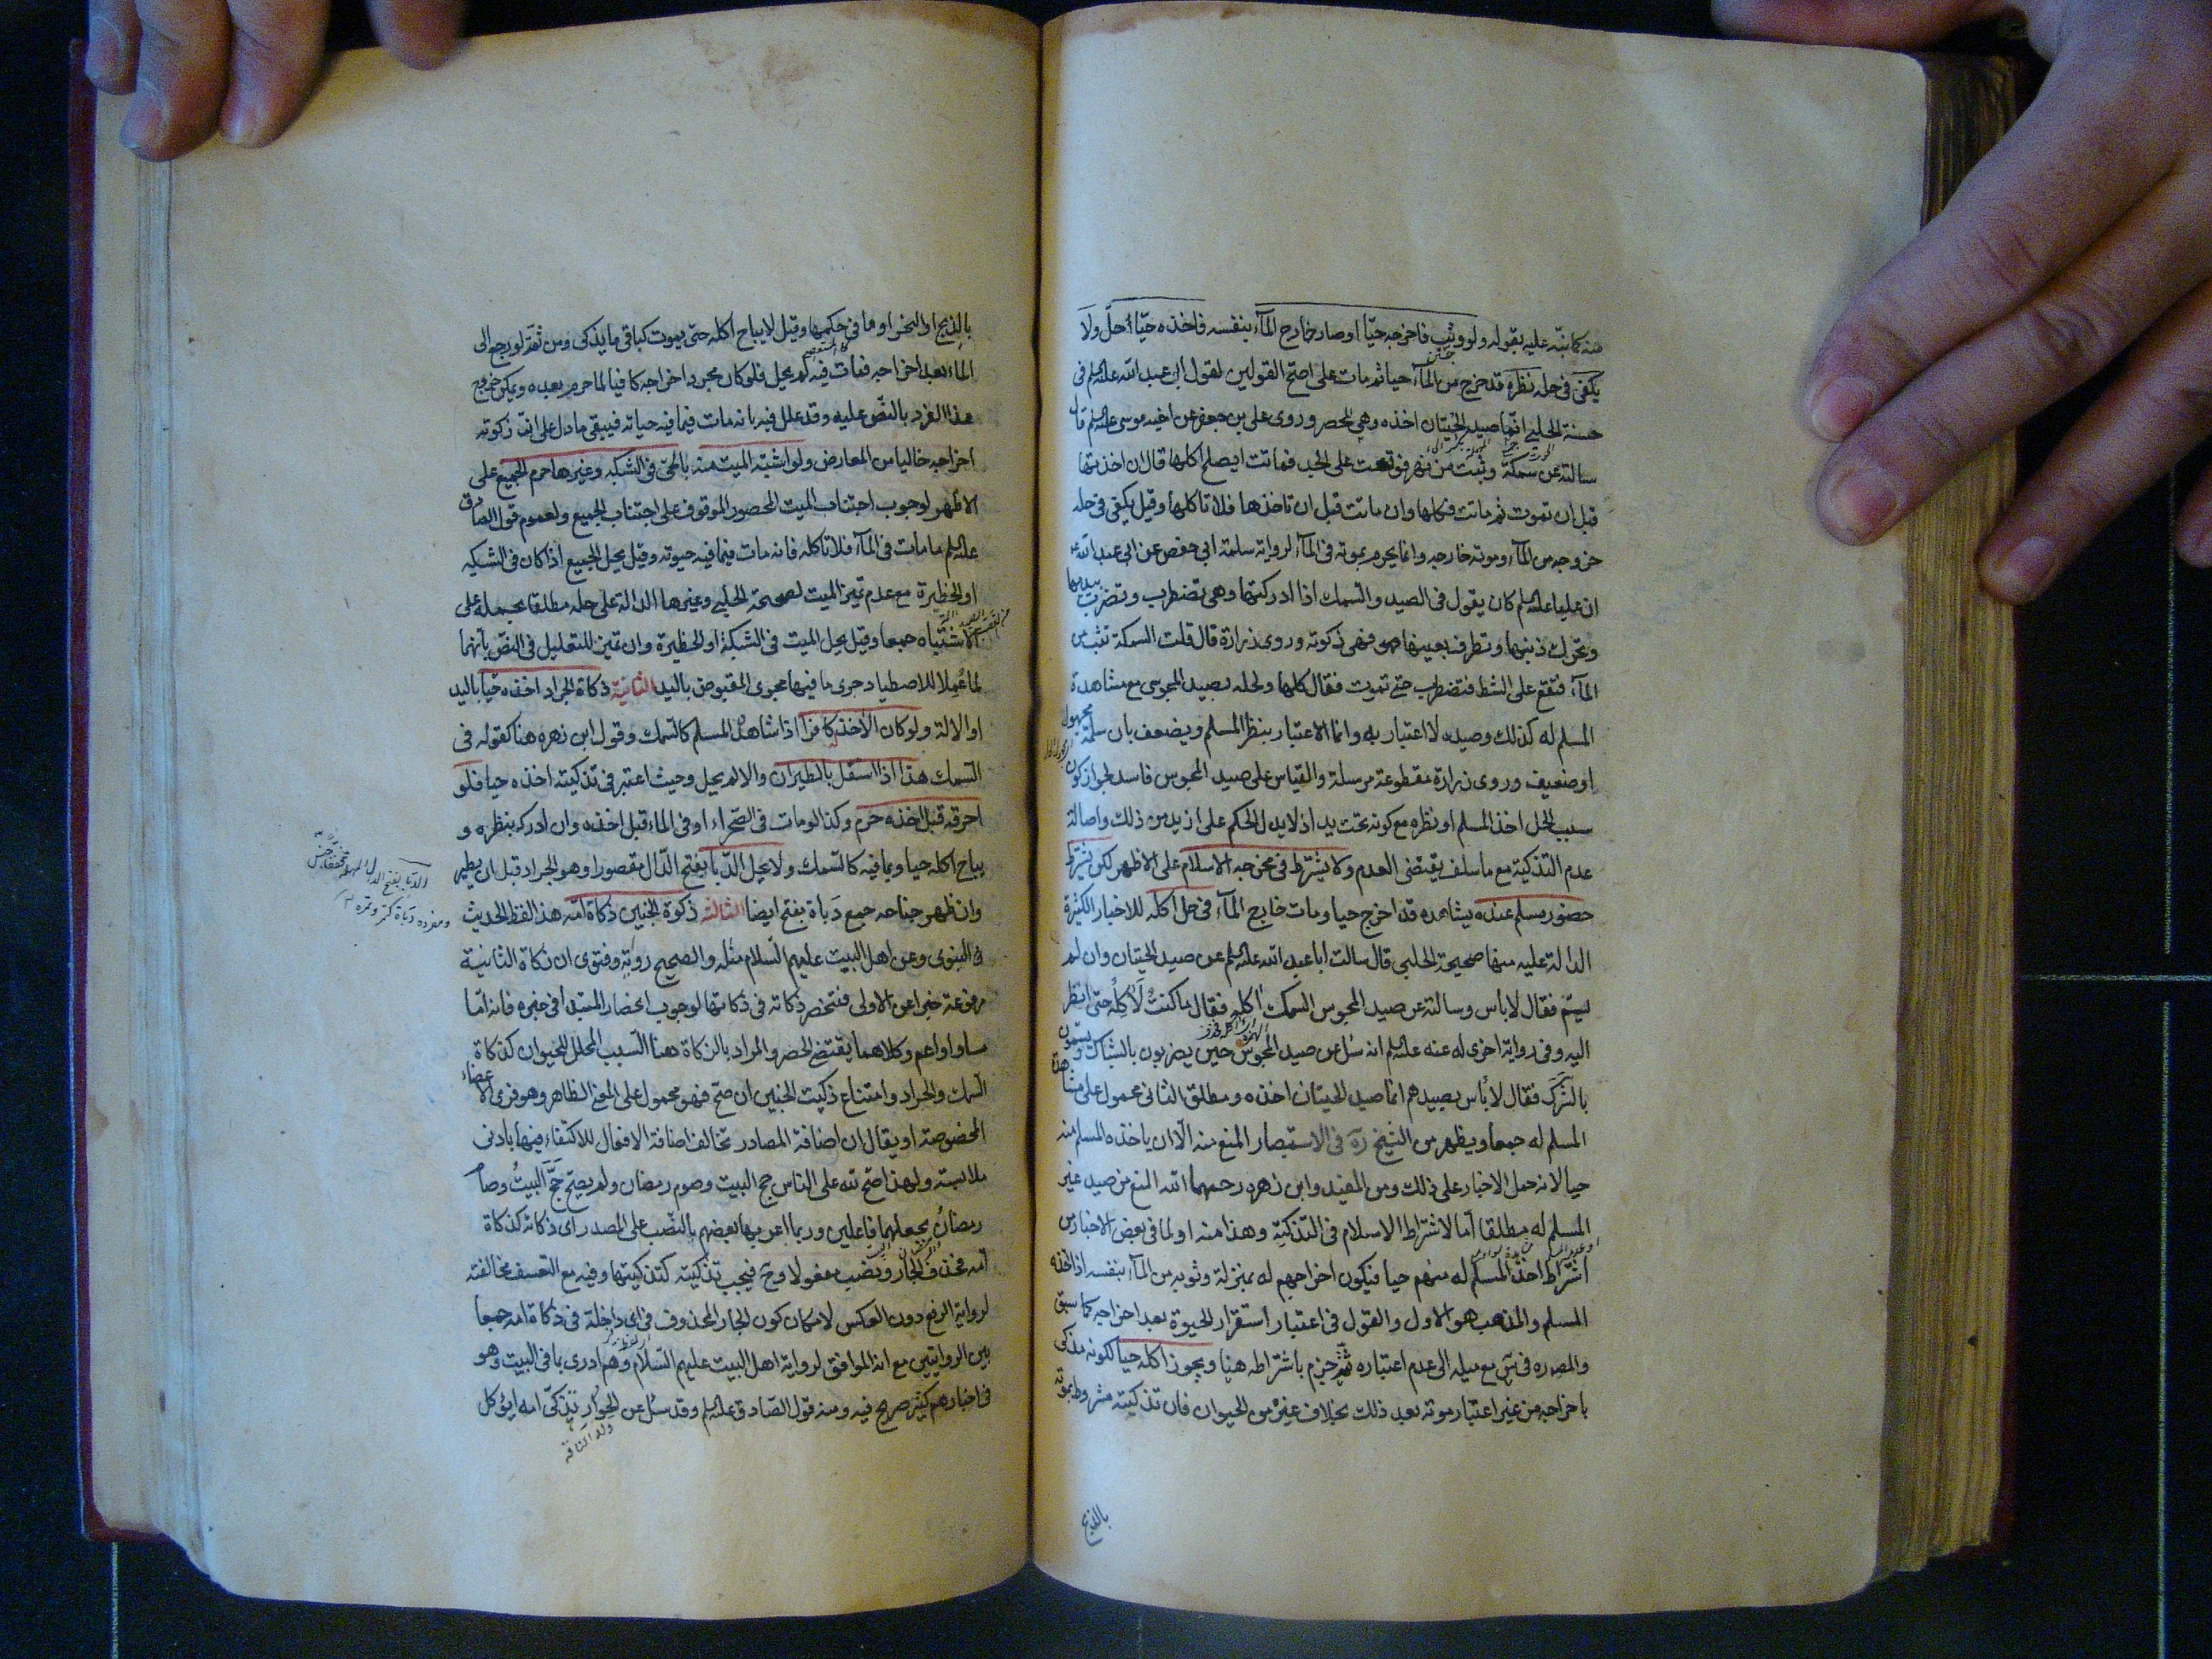 منه كما نبّه عليه بقوله ولو وثب فاخرجه حيّا او صار خارج المآء بنفسه فاخذه حيّا أحلّ ولا
يكفى فى حله نظره قد خرج من المآء حيا ثم مات على اصح القولين لقول ابى عبد الله عليه السلم فى
حسنة الحلبى انّما صيد الحيتان اخذه وهى للحصر وروى على بن جعفر عن اخيه موسى عليه السلم قال
سالته عن سمكة وثبت من نهر فوقعت على الجد فماتت ايصلح اكلها قال ان اخذتها
قبل ان تموت ثم ماتت فكلها وان ماتت قبل ان تاخذها فلا تاكلها وقيل يكفى فى حله
خروجه من المآء وموته خارجه وانما يحرم بموته فى المآء لرواية سلمة ابى حفص عن ابى عبد الله
ان عليا عليه السلم كان يقول فى الصيد والسمك اذا ادركتها وهى تضطرب وتضرب بيديها
وتحرك ذنبها وتطرف بعينها فهى ذكوته وروى زرارة قال قلت السمكة تثب من
المآء فتقع على الشط فتضطرب حتى تموت فقال كلها ولحله بصيد المجوسى مع مشاهدة
المسلم له كذلك وصيده لا اعتبار به وانما الاعتبار بنظر المسلم ويضعف بان سلمة مجهول
او ضعيف وروى زرارة مقطوعة مرسلة والقياس على صيد المجوس فاسد لجواز كون
سبب الحل اخذ المسلم او نظره مع كونه تحت يد اذ لا يدل الحكم على ازيد من ذلك واصالة
عدم التذكية مع ما سلف يقتضى العدم ولا يشترط فى مخرجه الاسلام على الاظهر لكن يشترط
حضور مسلم عنده يشاهده قد اخرج حيا ومات خارج المآء فى حل اكله للاخبار الكثيرة
الدالة عليه منها صحيحة الحلبى قال سالت ابا عبد الله عليه السلم عن صيد الحيتان وان لم
يسمّ فقال لا باس وسالته عن صيد المجوس السمك اكله فقال ما كنت لآكله حتى انظر
اليه وفى رواية اخرى له عنه عليه السلم انه سئل عن صيد المجوس حين يضربون بالشباك ويسمون
بالشرك فقال لا بأس بصيدهم انما صيد الحيتان اخذه ومطلق الثانى محمول على مشاهدة
المسلم له جمعا ويظهر من الشيخ ره فى الاستبصار المنع منه الّا ان ياخذه المسلم منه
حيا لانه حمل الاخبار على ذلك ومن المفيد وابن زهره رحمهما الله المنع من صيد غير
المسلم له مطلقا اما لاشتراط الاسلام فى التذكية وهذا منه او لما فى بعض الاخبار من
اشتراط اخذ المسلم له منهم حيا فيكون اخراجهم له بمنزلة وثوبه من المآء بنفسه اذا اخذه
المسلم والمذهب هو الاول والقول فى اعتبار استقرار الحيوة بعد اخراجه كما سبق
والمص ره فى س مع ميله الى عدم اعتباره ثمّ جزم باشتراطه هنا ويجوز اكله حيا لكونه مذكى
باخراجه من غير اعتبار موته بعد ذلك بخلاف غيره من الحيوان فان تذكيته مشروطه بموته
بالذبح
بالذبح او النحر او ما فى حكمهما وقيل لا يباح اكله حتى يموت كباقى ما يذكى ومن ثمّ لو رجع الى
الماء بعد اخراجه فمات فيه لم يحل فلو كان مجرد اخراجه كافيا لما حرم بعده ويمكن خروج
هذا الفرد بالنصّ عليه وقد علل فيه بانه مات فيما فيه حياته فيبقى ما دل على ان ذكوته
اخراجه خاليا من المعارض ولو اشتبه الميت منه بالحىّ فى الشبكه وغيرها حرم الجميع على
الاظهر لوجوب اجتناب الميت المحصور الموقوف على اجتناب الجميع ولعموم قول الصادق
عليه السلم ما مات فى المآء فلا تاكله فانه مات فيما فيه حيوته وقيل يحل الجميع اذا كان فى الشبكه
او الحظيرة مع عدم تميز الميت لصحيحة الحلبى وغيرها الدالة على حله مطلقا بحمله على
الاشتباه جمعا وقيل يحل الميت فى الشبكة او الحظيرة وان تميز للتعليل فى النص بانهما
لما عُملا للاصطياد جرى ما فيهما مجرى المقبوض باليد الثانية ذكاة الجراد اخذه حيّا باليد
او الآلة ولو كان الآخذ كافرا اذا شاهده المسلم كالسمك وقول ابن زهره هنا كقوله فى
السمك هذا اذا استقل بالطيران والا لم يحل وحيث اعتبر فى تذكيته اخذه حيا فلو
احرقه قبل اخذه حرم وكذا لو مات فى الصحراء او فى الماء قبل اخذه وان ادركه بنظره و
يباح اكله حيا وبما فيه كالسمك ولا يحل الدّبا بفتح الدّال مقصورا وهو الجراد قبل ان يطير
وان ظهر جناحه جمع دَباة بفتح ايضا الثالثة ذكوة الجنين ذكاة امّه هذا لفظ الحديث
النبوى وعن اهل البيت عليهم السّلام مثله والصحيح رواية وفتوى ان ذكاة الثانية
مرفوعة خبرا عن الاولى فتنحصر ذكاته فى ذكاتها لوجوب انحصار المبتدا فى خبره فانه امّا
مساو او اعم وكلاهما يقتضى الحصر والمراد بالذكاة هنا السبب المحلل للحيوان كذكاة
السمك والجراد وامتناع ذكيت الجنين ان صحّ فهو محمول على المعنى الظاهر وهو فرى الاعضاء
المخصوصة او يقال ان اضافة المصادر تخالف اضافة الافعال للاكتفاء فيها بادنى
ملابسة ولهذا صح لله على الناس حج البيت وصوم رمضان ولم يصح حَجَّ البيتُ وصام
رمضانُ بجعلهما فاعلين وربما اعربها بعضهم بالنصب على المصدر اى ذكاته كذكاة
امه فحذف الجار ونصب مفعولا وح فيجب تذكيته كتذكيتها وفيه مع التعسف مخالفته
لرواية الرفع دون العكس لامكان كون الجار المحذوف فى اى داخلة فى ذكاة امه جمعا
بين الروايتين مع انه الموافق لرواية اهل البيت عليهم السّلام وهم ادرى بما فى البيت وهو
فى اخبارهم كثير صريح فيه ومنه قول الصّادق عليه السلم وقد سئل عن الحُوار تذكّى امه ايؤكل
ولد الناقه